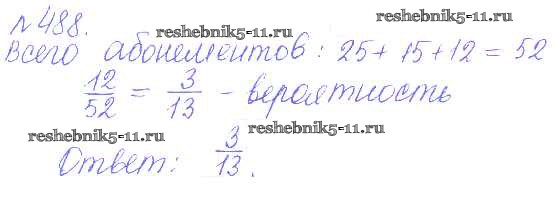 №488. reshebnik5-11.ru
Всего абонементов: 25+ 15+12 = 52
12/52 = 3/13 - вероятность
reshebnik5-11.ru reshebnik5-11.ru
Ответ: 3/13.